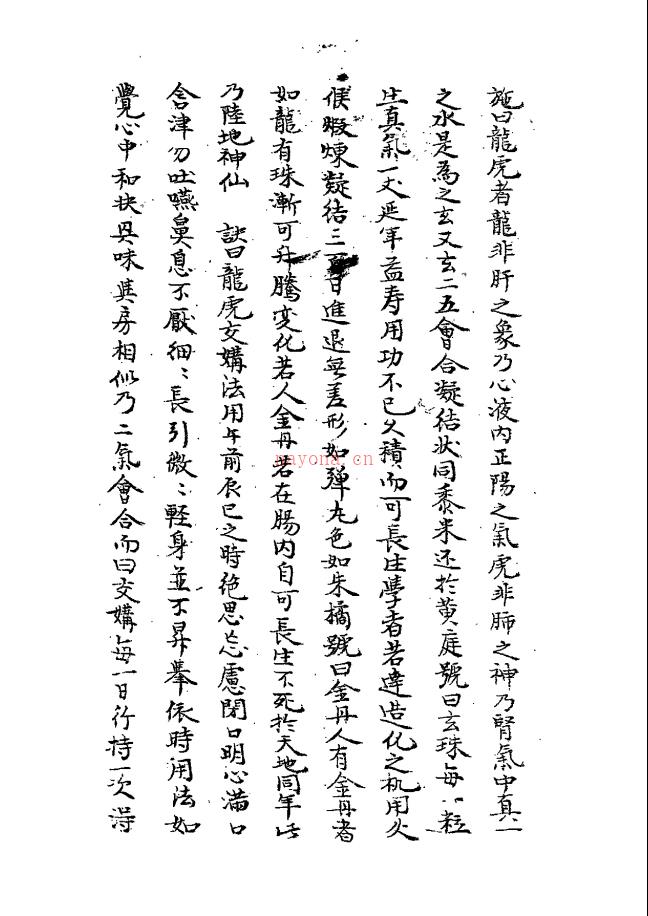 施曰龍虎者龍非肝之象乃心液內正陽之氣虎非肺之神乃腎氣中真一
之水是為之玄又玄二五會合凝結状同黍米还於黄庭號曰玄珠每八粒
生真氣一丈延年益寿用功不已久積而可長生學者若達造化之机用火
候煅煉凝结三百日進退無差形如弹丸色如朱橘號曰金丹人有金丹者
如龍有珠漸可升騰变化若人金丹若在腸内自可長生不死於天地同年此
乃陸地神仙 訣曰龍虎交媾法用午前辰巳之時绝思忘慮閉口明心满口
含津勿吐嚥鼻息不厭细〻長引微〻軽身並不昇舉依時用法如
覺心中和快其味與房相似乃二氣會合而曰交媾每一日行持一次得
nayona.cn